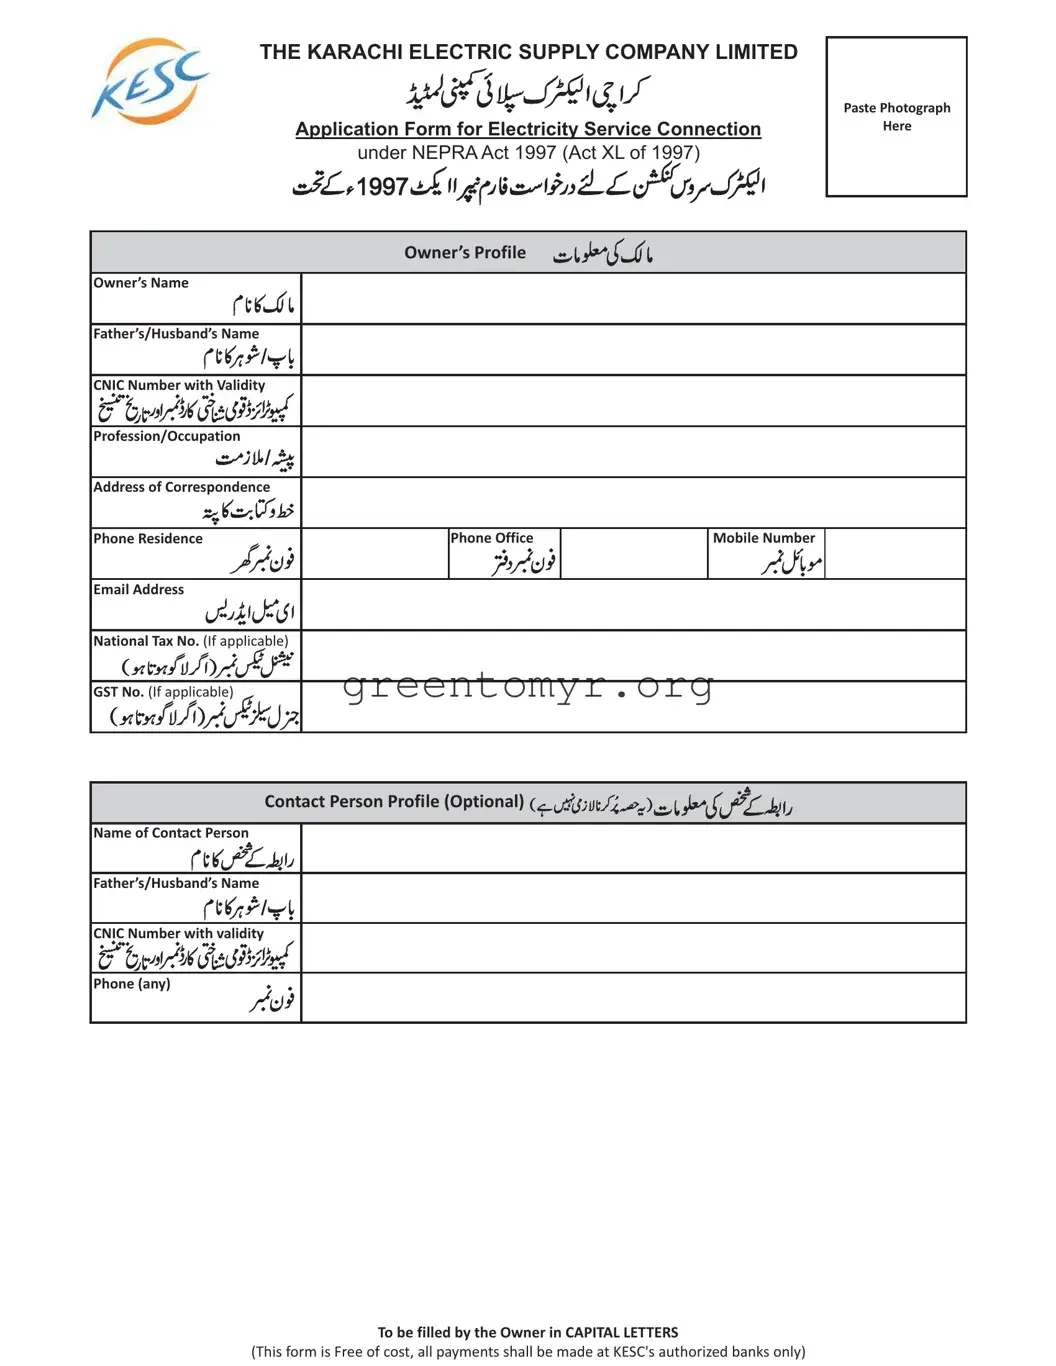 KESC
THE KARACHI ELECTRIC SUPPLY COMPANY LIMITED
کراچی الیکٹرک سپلائی کمپنی لمیٹیڈ
Application Form for Electricity Service Connection
under NEPRA Act 1997 (Act XL of 1997)
الیکٹرک سروس کنکشن کے لئے درخواست فارم نیپرا ایکٹ 1997ء کے تحت
Paste Photograph
Here
Owner’s Profile مالک کی معلومات
Owner’s Name
مالک کا نام
Father’s/Husband’s Name
باپ/شوہر کا نام
CNIC Number with Validity
کمپیوٹرائزڈ قومی شناختی کارڈ نمبر اور تاریخ تنسیخ
Profession/Occupation
پیشہ/ملازمت
Address of Correspondence
خط و کتابت کا پتہ
Phone Residence
فون نمبر گھر
Phone Office
فون نمبر دفتر
Mobile Number
موبائل نمبر
Email Address
ای میل ایڈریس
National Tax No. (If applicable)
نیشنل ٹیکس نمبر (اگر لاگو ہوتا ہو)
GST No. (If applicable)
جنرل سیلز ٹیکس نمبر (اگر لاگو ہوتا ہو)
greentomyr.org
Contact Person Profile (Optional) رابطہ کے شخص کی معلومات (یہ حصہ پُر کرنا لازمی نہیں ہے)
Name of Contact Person
رابطہ کے شخص کا نام
Father’s/Husband’s Name
باپ/شوہر کا نام
CNIC Number with validity
کمپیوٹرائزڈ قومی شناختی کارڈ نمبر اور تاریخ تنسیخ
Phone (any)
فون نمبر
To be filled by the Owner in CAPITAL LETTERS
(This form is Free of cost, all payments shall be made at KESC's authorized banks only)